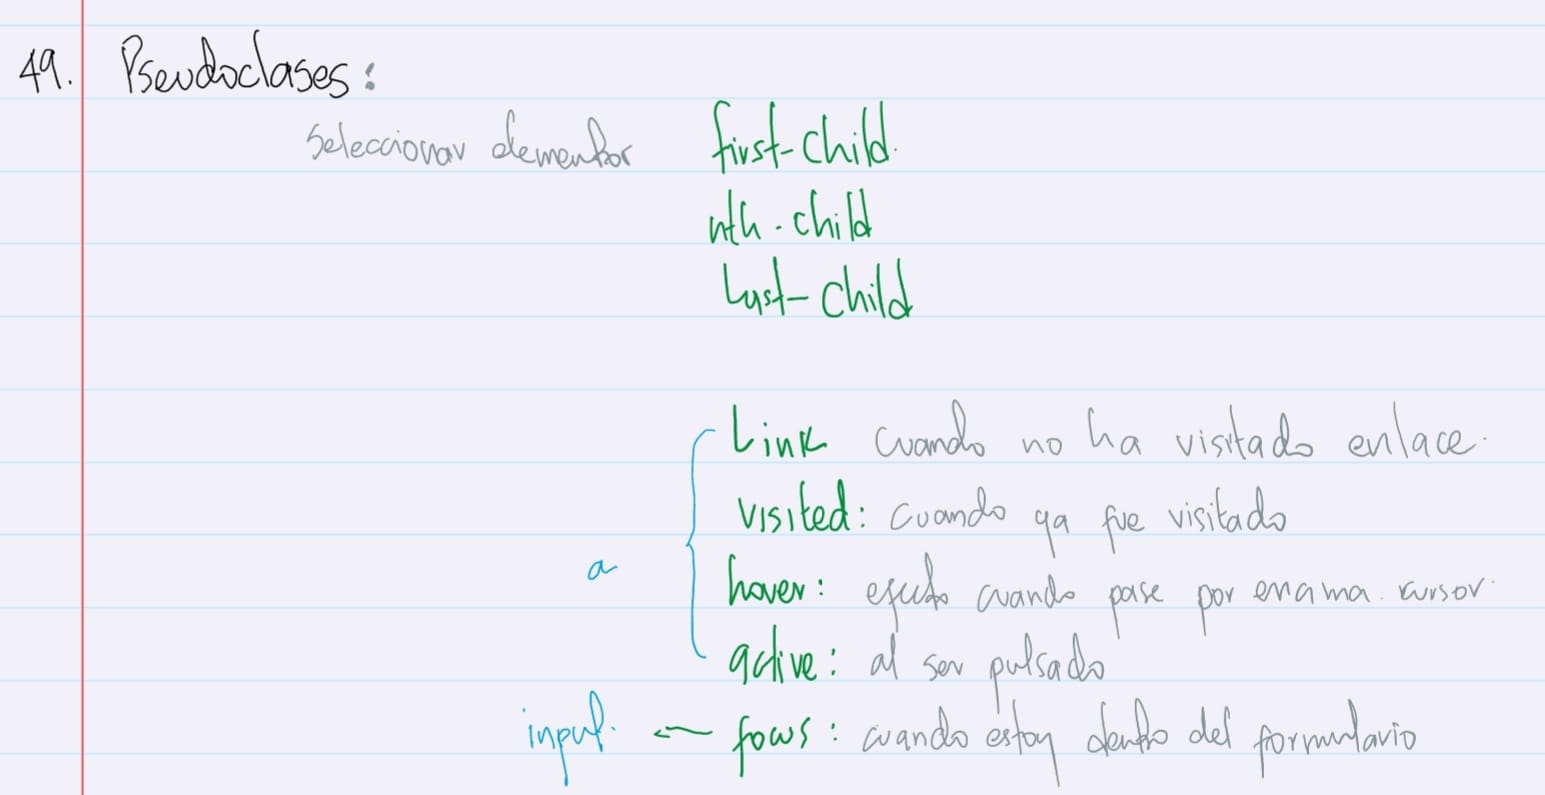 49. Pseudoclases:
Seleccionar elementos first-child.
nth-child
Last-child
Link cuando no ha visitado enlace.
visited: cuando ya fue visitado
a
hover: efecto cuando pase por encima cursor.
active: al ser pulsado
input. ← focus: cuando estoy dentro del formulario